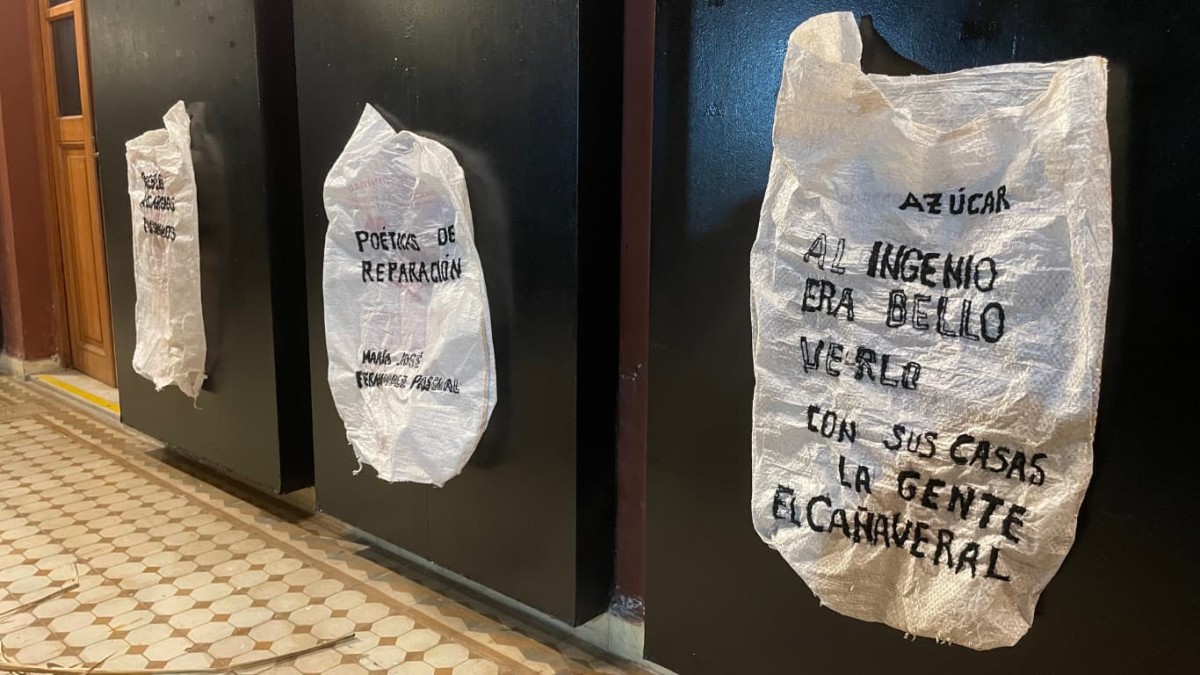 POÉTICAS DE
REPARACIÓN
MARÍA JOSÉ
FERNÁNDEZ PASCUAL
AZÚCAR
AL INGENIO
ERA BELLO
VE-RLO
CON SUS CASAS
LA GENTE
EL CAÑAVERAL